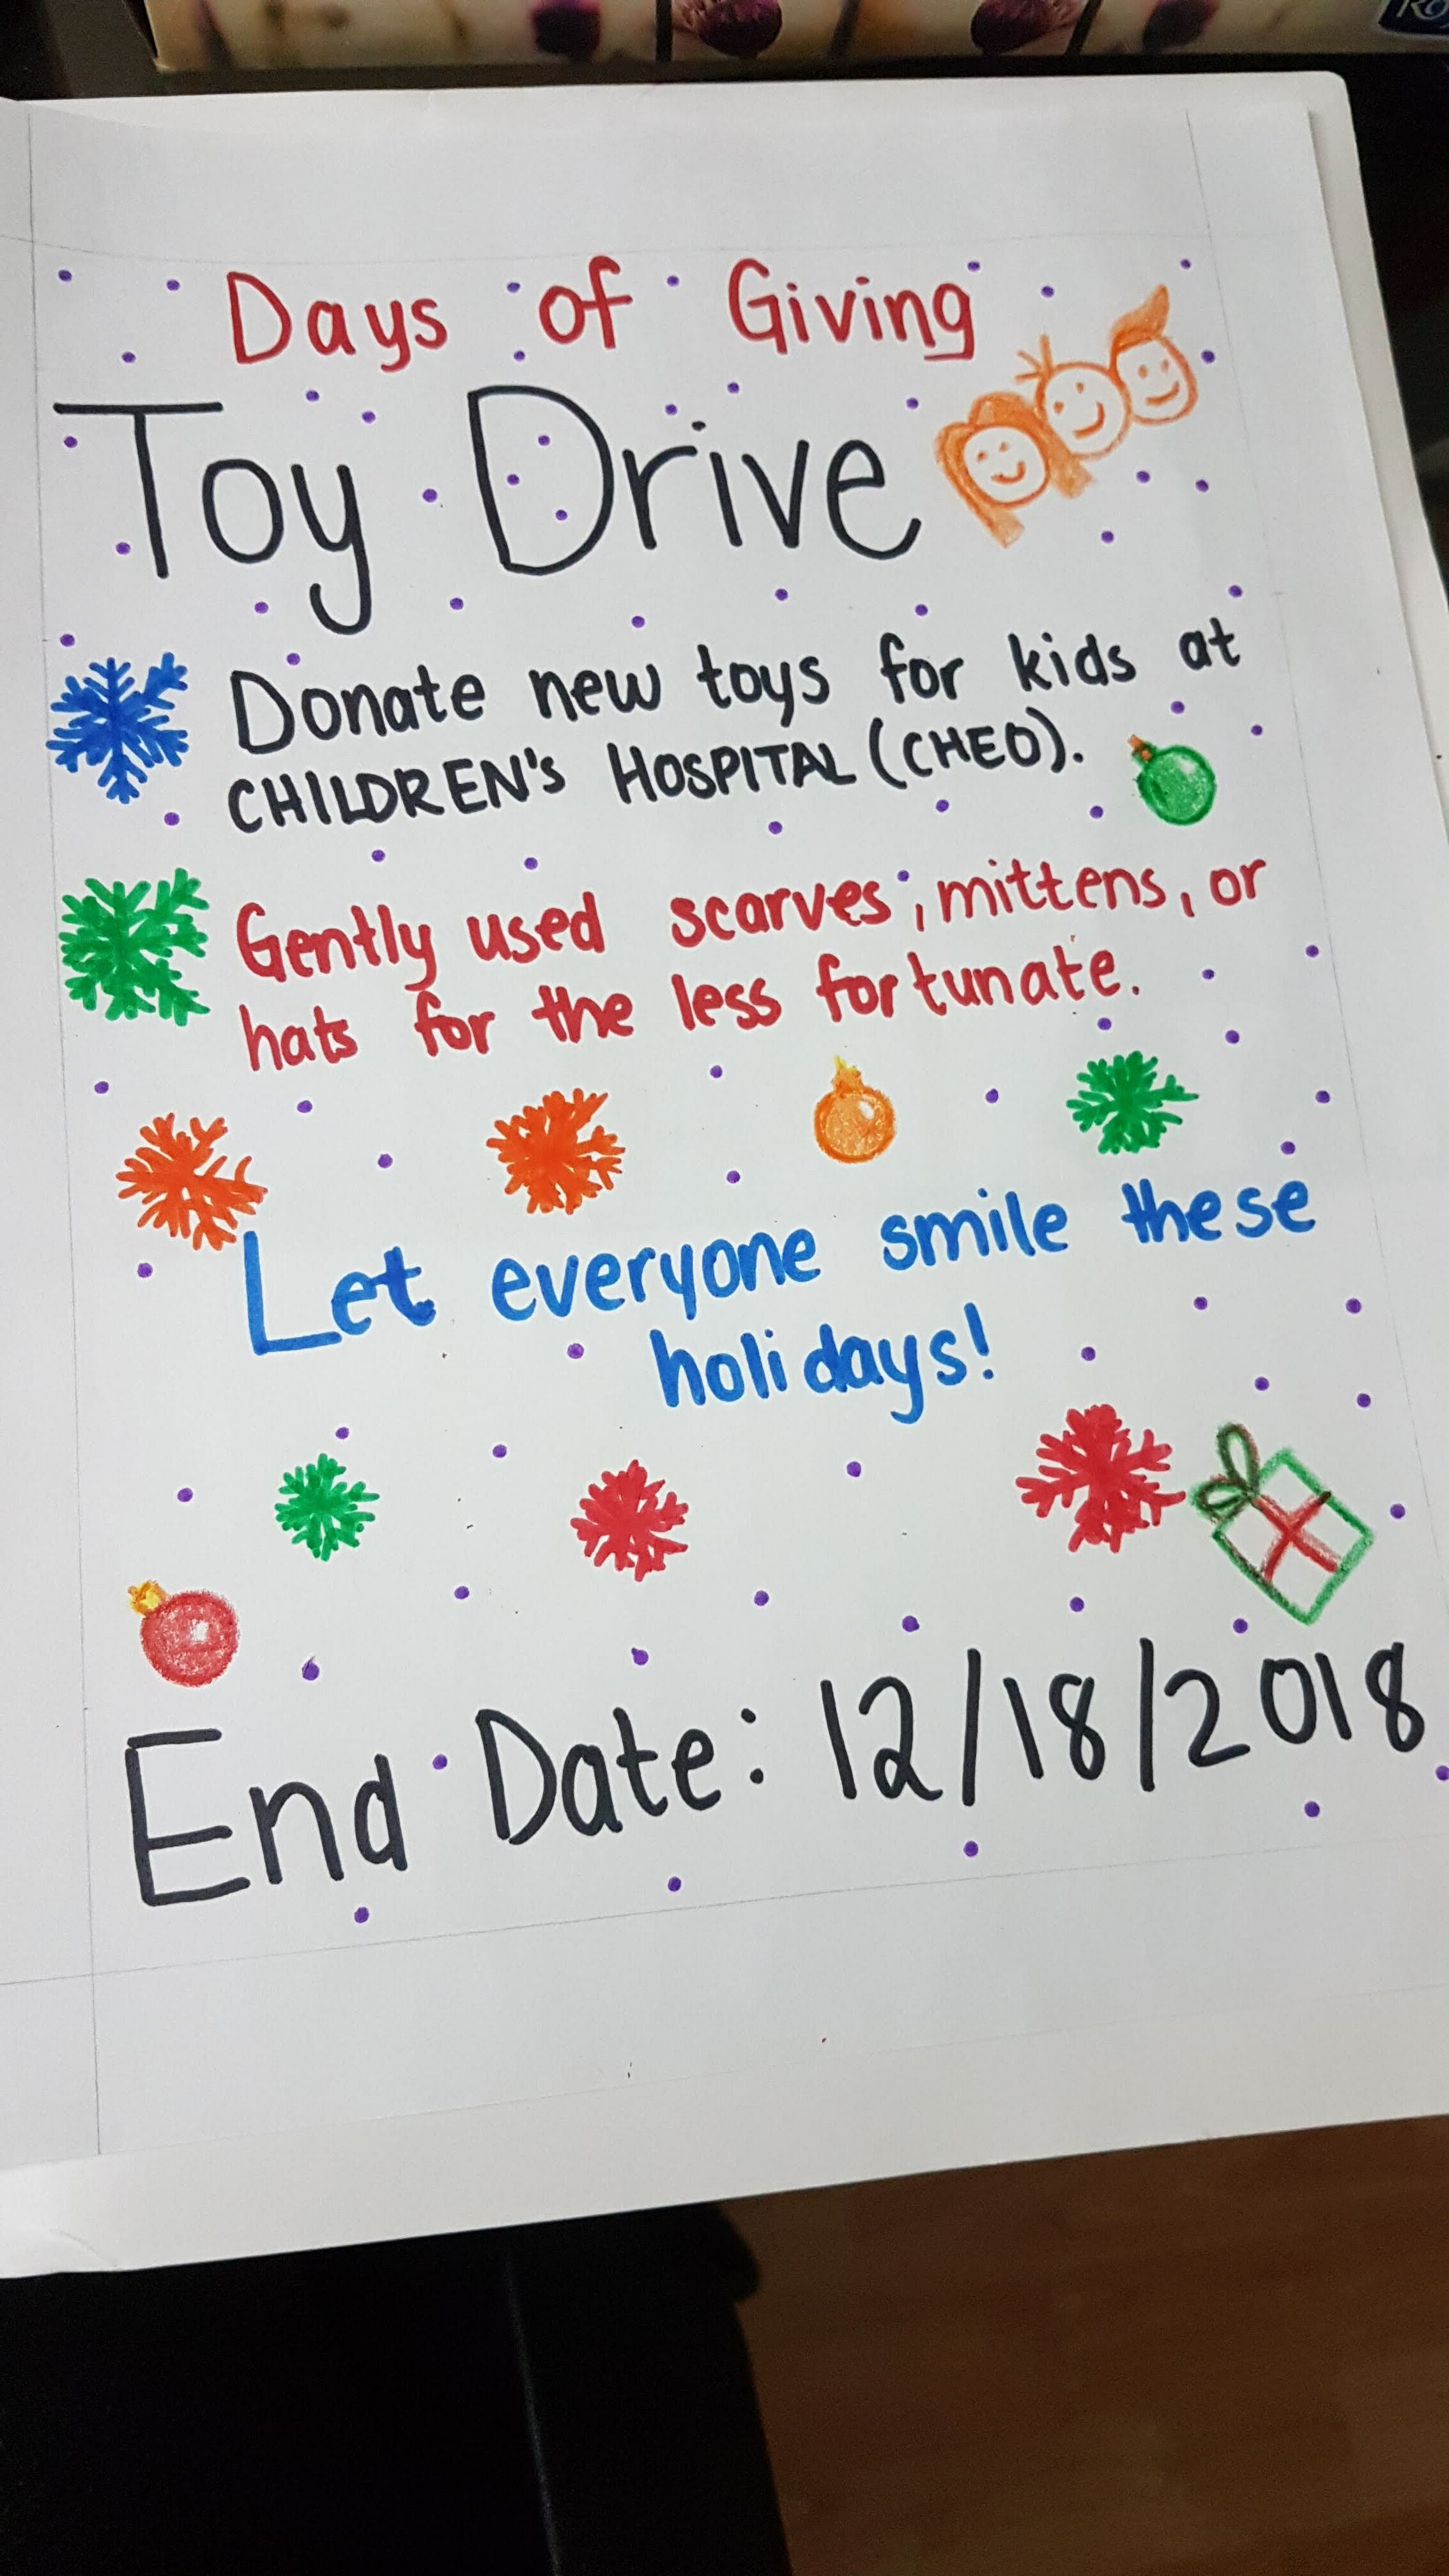 Days of Giving
Toy Drive
Donate new toys for kids at
CHILDREN's HOSPITAL (CHEO).
Gently used scarves, mittens, or
hats for the less fortunate.
Let everyone smile these
holidays!
End Date: 12/18/2018